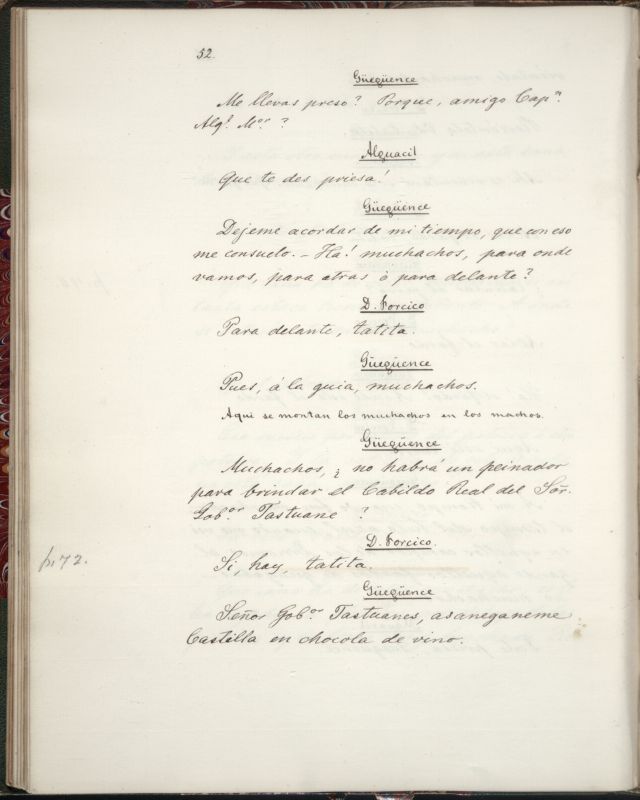 52.
Güegüence
Me llevas preso? Porque, amigo Capn.
Algl. Mor ?
Alguacil
Que te des priesa!
Güegüence
Dejeme acordar de mi tiempo, que con eso
me consuelo. – Ha! muchachos, para onde
vamos, para atras ò para delante?
D. Forcico
Para delante, tatita.
Güegüence
Pues, á la guia, muchachos.
Aqui se montan los muchachos en los machos.
Güegüence
Muchachos, ¿ no habrá un peinador
para brindar el Cabildo Real del Sor.
Gobor. Tastuane ?
D. Forcico.
p. 72.
Si, hay, tatita.
Güegüence
Señor Gobor. Tastuanes, asaneganeme
Castilla en chocola de vino.